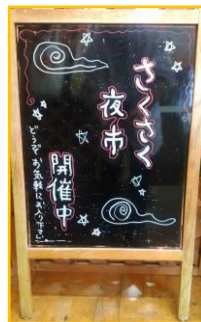 さくさく
夜市
開催中
どうぞ お気軽にお入り下さい。